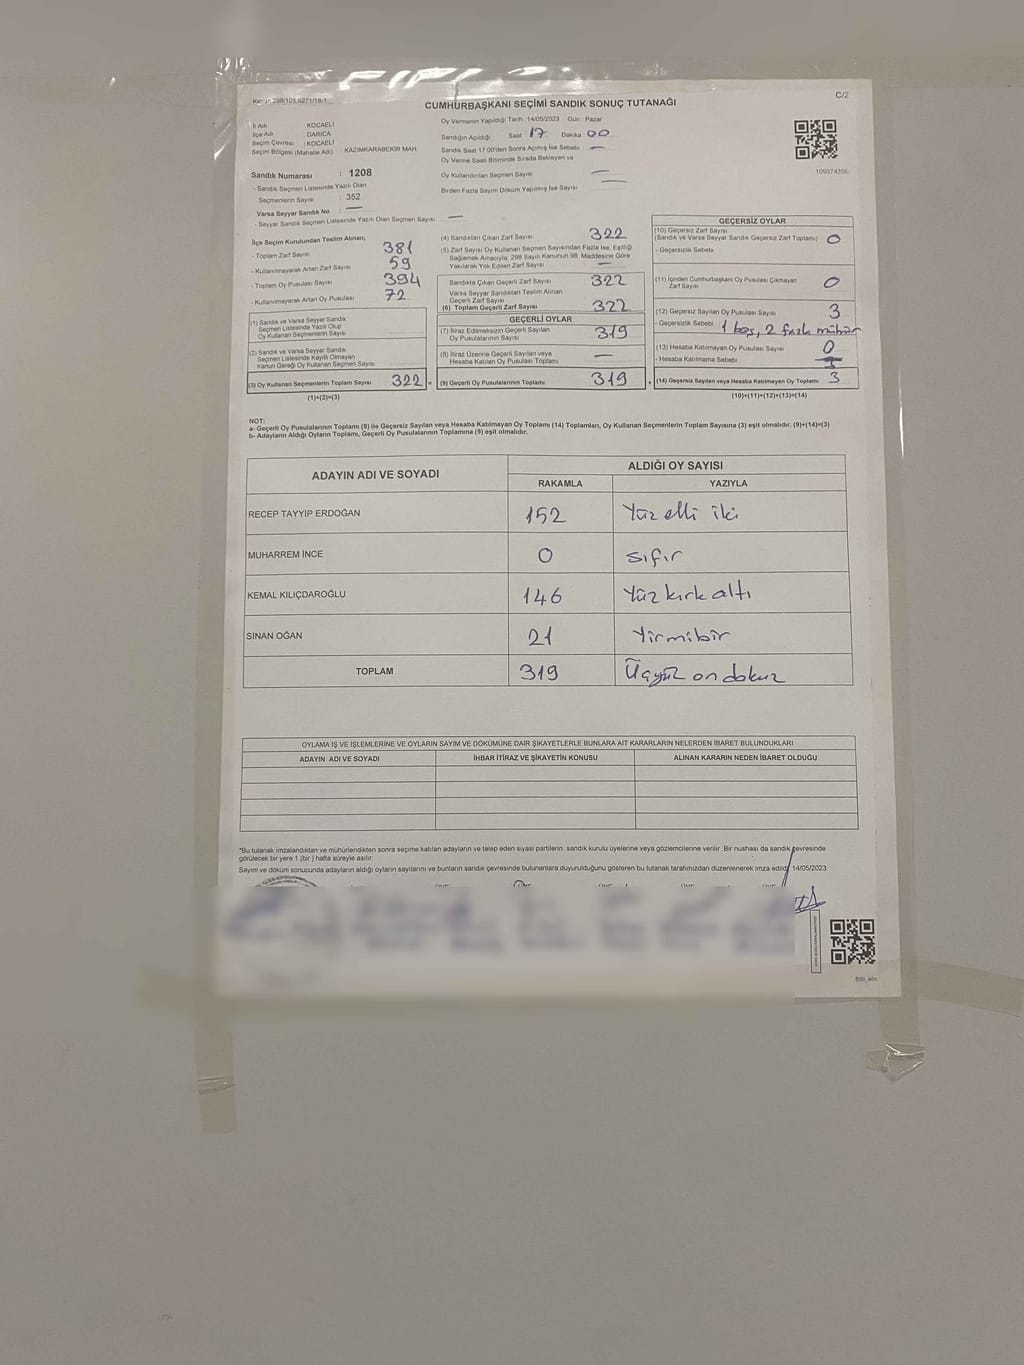 C/2
CUMHURBAŞKANI SEÇİMİ SANDIK SONUÇ TUTANAĞI
İl Adı : KOCAELİ
İlçe Adı : DARICA
Seçim Çevresi : KOCAELİ
Seçim Bölgesi (Mahalle Adı) KAZIMKARABEKİR MAH
Sandık Numarası : 1208
- Sandık Seçmen Listesinde Yazılı Olan
Seçmenlerin Sayısı : 352
Varsa Seyyar Sandık No : —
- Seyyar Sandık Seçmen Listesinde Yazılı Olan Seçmen Sayısı —
Oy Vermenin Yapıldığı Tarih : 14/05/2023 Gün : Pazar
Sandığın Açıldığı Saat : 17 Dakika : 00
Sandık Saat 17:00'den Sonra Açılmış İse Sebebi —
Oy Verme Saati Bitiminde Sırada Bekleyen ve
Oy Kullandırılan Seçmen Sayısı —
Birden Fazla Sayım Döküm Yapılmış İse Sayısı —
İlçe Seçim Kurulundan Teslim Alınan;
- Toplam Zarf Sayısı 381
- Kullanılmayarak Artan Zarf Sayısı 59
- Toplam Oy Pusulası Sayısı 394
- Kullanılmayarak Artan Oy Pusulası 72
(1) Sandık ve Varsa Seyyar Sandık
Seçmen Listesinde Yazılı Olup
Oy Kullanan Seçmenlerin Sayısı
(2) Sandık ve Varsa Seyyar Sandık
Seçmen Listesinde Kayıtlı Olmayan
Kanun Gereği Oy Kullanan Seçmen Sayısı
(3) Oy Kullanan Seçmenlerin Toplam Sayısı 322 =
(1)+(2)=(3)
(4) Sandıktan Çıkan Zarf Sayısı 322
(5) Zarf Sayısı Oy Kullanan Seçmen Sayısından Fazla İse, Eşitliği
Sağlamak Amacıyla, 298 Sayılı Kanunun 98. Maddesine Göre
Yakılarak Yok Edilen Zarf Sayısı —
Sandıkta Çıkan Geçerli Zarf Sayısı 322
Varsa Seyyar Sandıktan Teslim Alınan
Geçerli Zarf Sayısı
(6) Toplam Geçerli Zarf Sayısı 322
GEÇERLİ OYLAR
(7) İtiraz Edilmeksizin Geçerli Sayılan
Oy Pusulalarının Sayısı 319
(8) İtiraz Üzerine Geçerli Sayılan veya
Hesaba Katılan Oy Pusulası Toplamı —
(9) Geçerli Oy Pusulalarının Toplamı 319 +
GEÇERSİZ OYLAR
(10) Geçersiz Zarf Sayısı
(Sandık ve Varsa Seyyar Sandık Geçersiz Zarf Toplamı) 0
- Geçersizlik Sebebi
(11) İçinden Cumhurbaşkanı Oy Pusulası Çıkmayan
Zarf Sayısı 0
(12) Geçersiz Sayılan Oy Pusulası Sayısı 3
- Geçersizlik Sebebi 1 boş, 2 fazla mühür
(13) Hesaba Katılmayan Oy Pusulası Sayısı 0
- Hesaba Katılmama Sebebi
(14) Geçersiz Sayılan veya Hesaba Katılmayan Oy Toplamı 3
(10)+(11)+(12)+(13)=(14)
NOT:
a- Geçerli Oy Pusulalarının Toplamı (9) ile Geçersiz Sayılan veya Hesaba Katılmayan Oy Toplamı (14) Toplamları, Oy Kullanan Seçmenlerin Toplam Sayısına (3) eşit olmalıdır. (9)+(14)=(3)
b- Adayların Aldığı Oyların Toplamı, Geçerli Oy Pusulalarının Toplamına (9) eşit olmalıdır.
ADAYIN ADI VE SOYADI ALDIĞI OY SAYISI
RAKAMLA YAZIYLA
RECEP TAYYİP ERDOĞAN 152 Yüz elli iki
MUHARREM İNCE 0 sıfır
KEMAL KILIÇDAROĞLU 146 Yüz kırk altı
SİNAN OĞAN 21 Yirmibir
TOPLAM 319 Üçyüz on dokuz
OYLAMA İŞ VE İŞLEMLERİNE VE OYLARIN SAYIM VE DÖKÜMÜNE DAİR ŞİKAYETLERLE BUNLARA AİT KARARLARIN NELERDEN İBARET BULUNDUKLARI
ADAYIN ADI VE SOYADI İHBAR İTİRAZ VE ŞİKAYETİN KONUSU ALINAN KARARIN NEDEN İBARET OLDUĞU
*Bu tutanak imzalandıktan ve mühürlendikten sonra seçime katılan adayların ve talep eden siyasi partilerin sandık kurulu üyelerine veya gözlemcilerine verilir. Bir nüshası da sandık çevresinde
görülecek bir yere 1 (bir) hafta süreyle asılır.
Sayım ve döküm sonucunda adayların aldığı oyların sayılarını ve bunların sandık çevresinde bulunanlara duyurulduğunu gösteren bu tutanak tarafımızdan düzenlenerek imza edildi. 14/05/2023